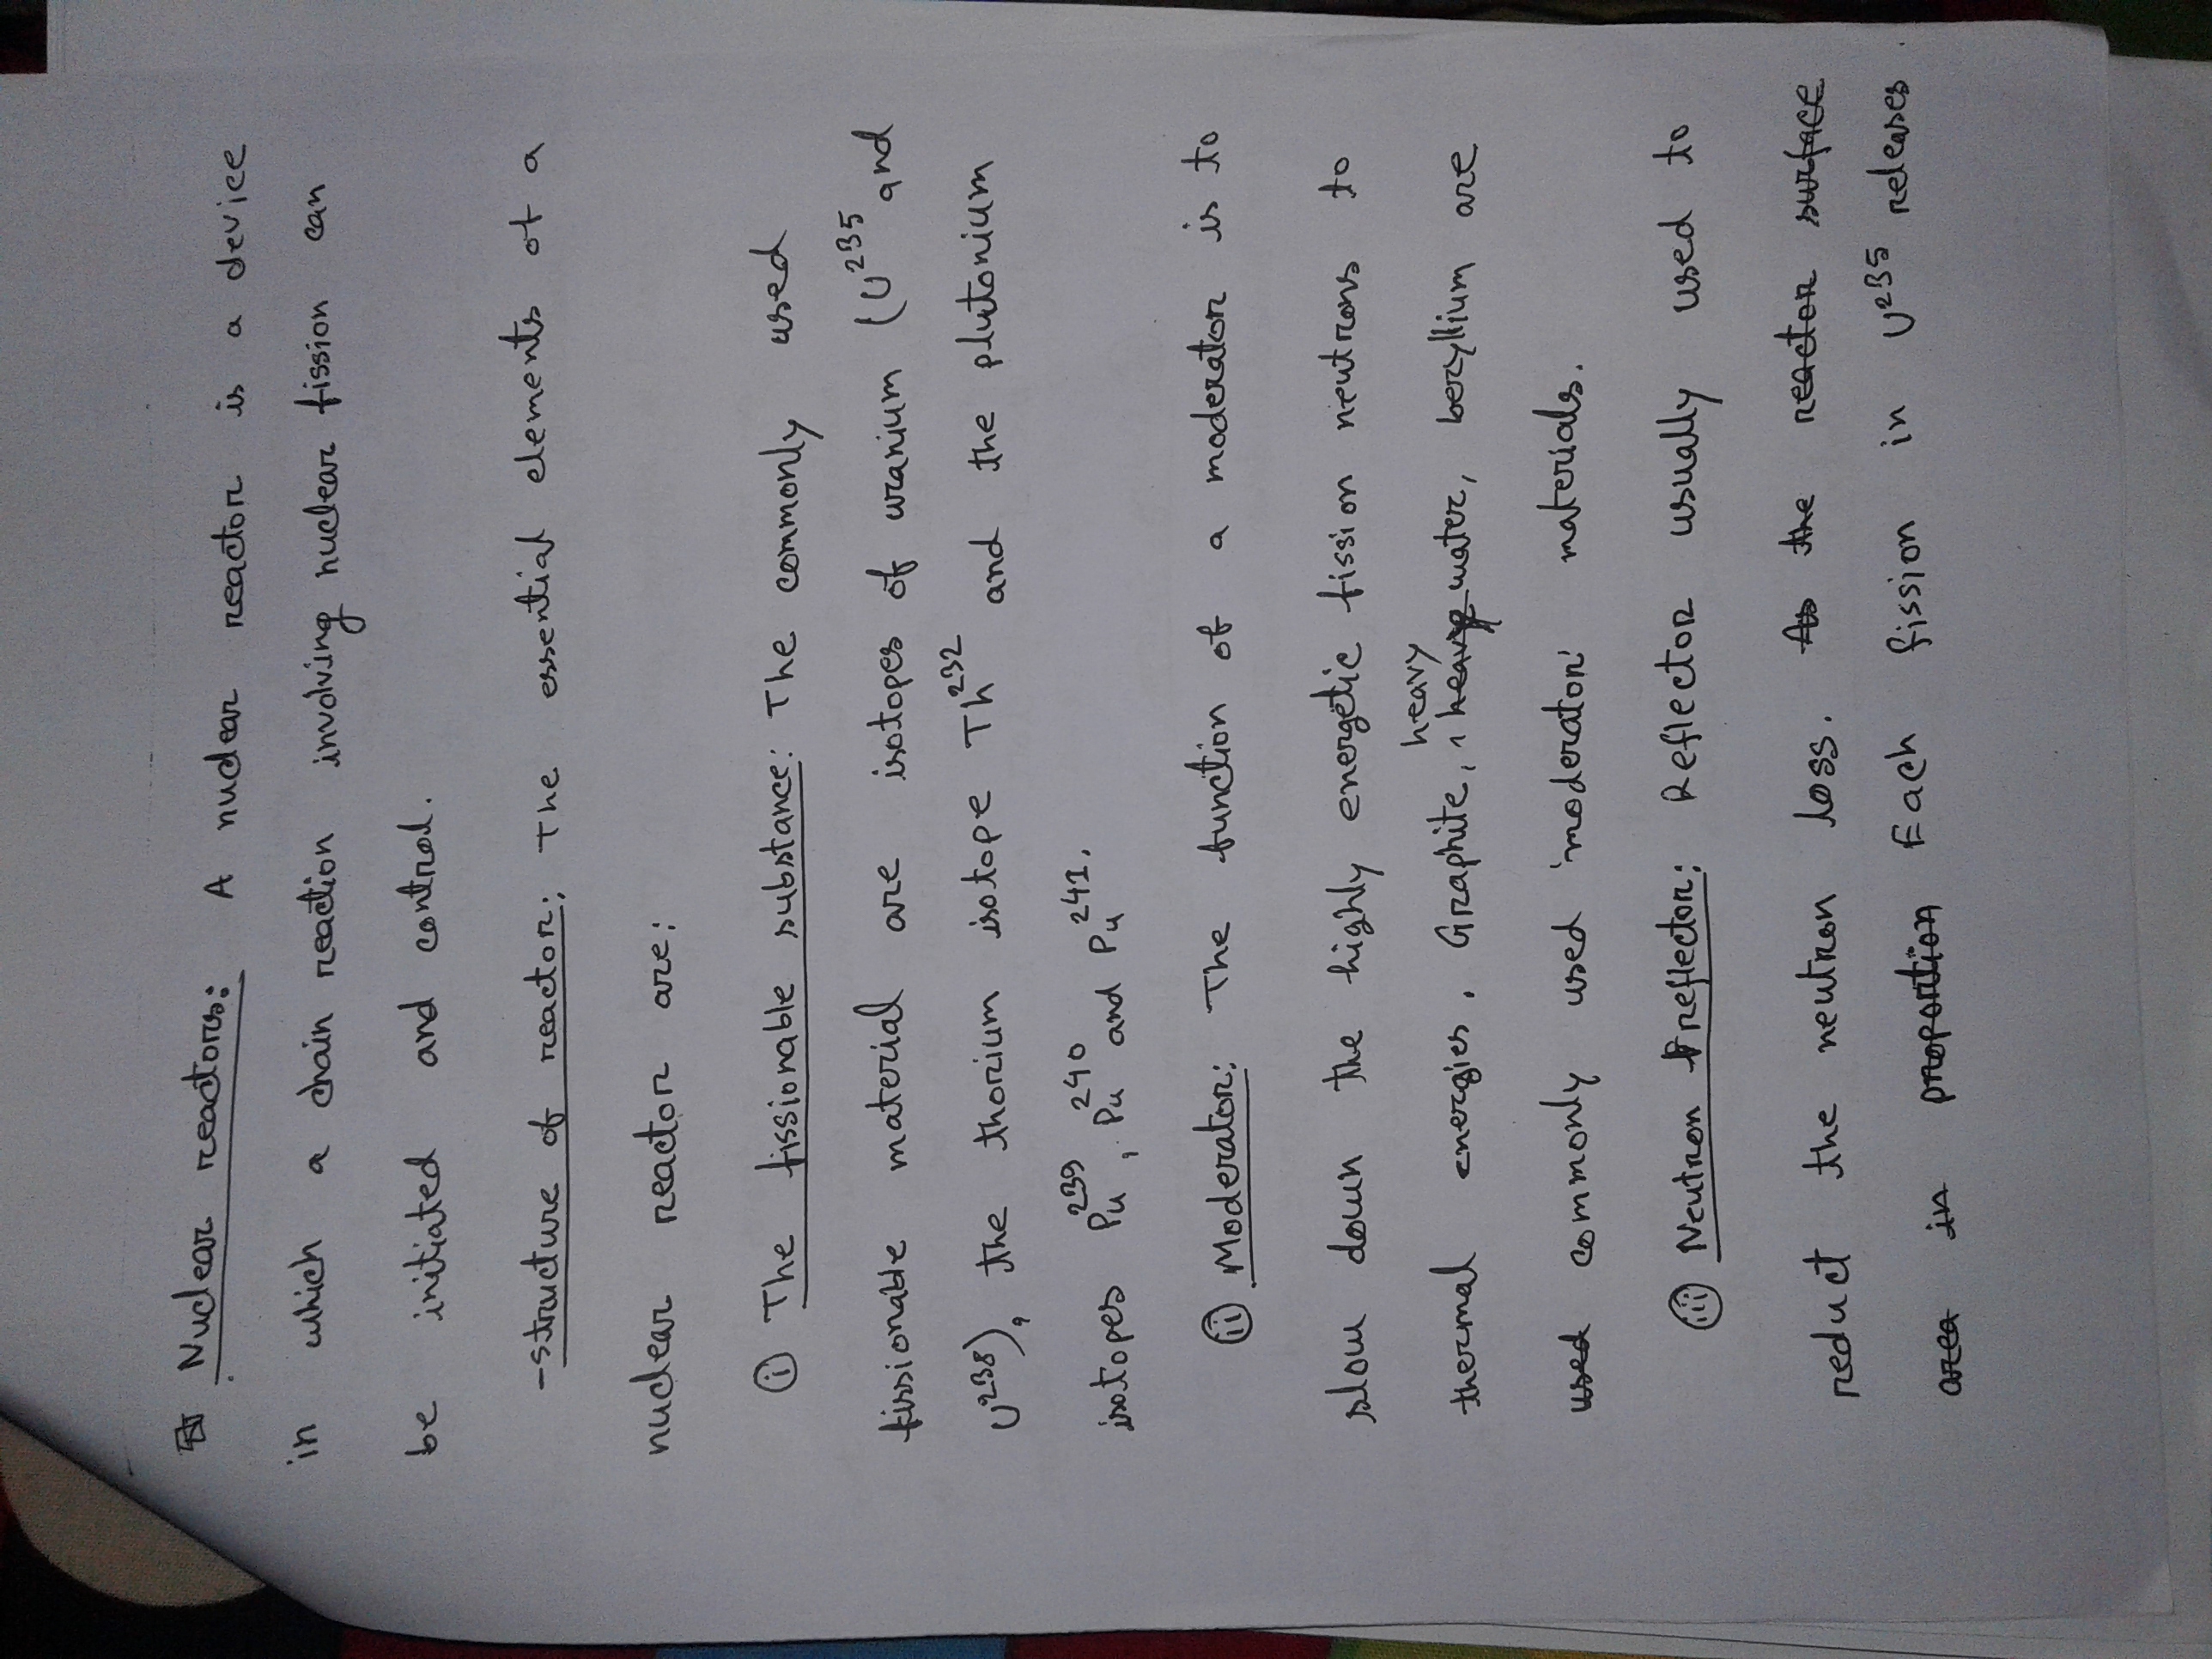 Nuclear reactors: A nuclear reactor is a device
in which a chain reaction involving nuclear fission can
be initiated and control.
-structure of reactor: The essential elements of a
nuclear reactor are:
(i) The fissionable substance: The commonly used
fissionable material are isotopes of uranium (U²³⁵ and
U²³⁸), the thorium isotope Th²³² and the plutonium
isotopes Pu²³⁹, Pu²⁴⁰ and Pu²⁴¹.
(ii) Moderator: The function of a moderator is to
slow down the highly energetic fission neutrons to
heavy
thermal energies. Graphite, water, beryllium are
used commonly used 'moderator' materials.
(iii) Neutron reflector: Reflector usually used to
reduct the neutron loss. As the reactor surface
area in proportion Each fission in U²³⁵ releases